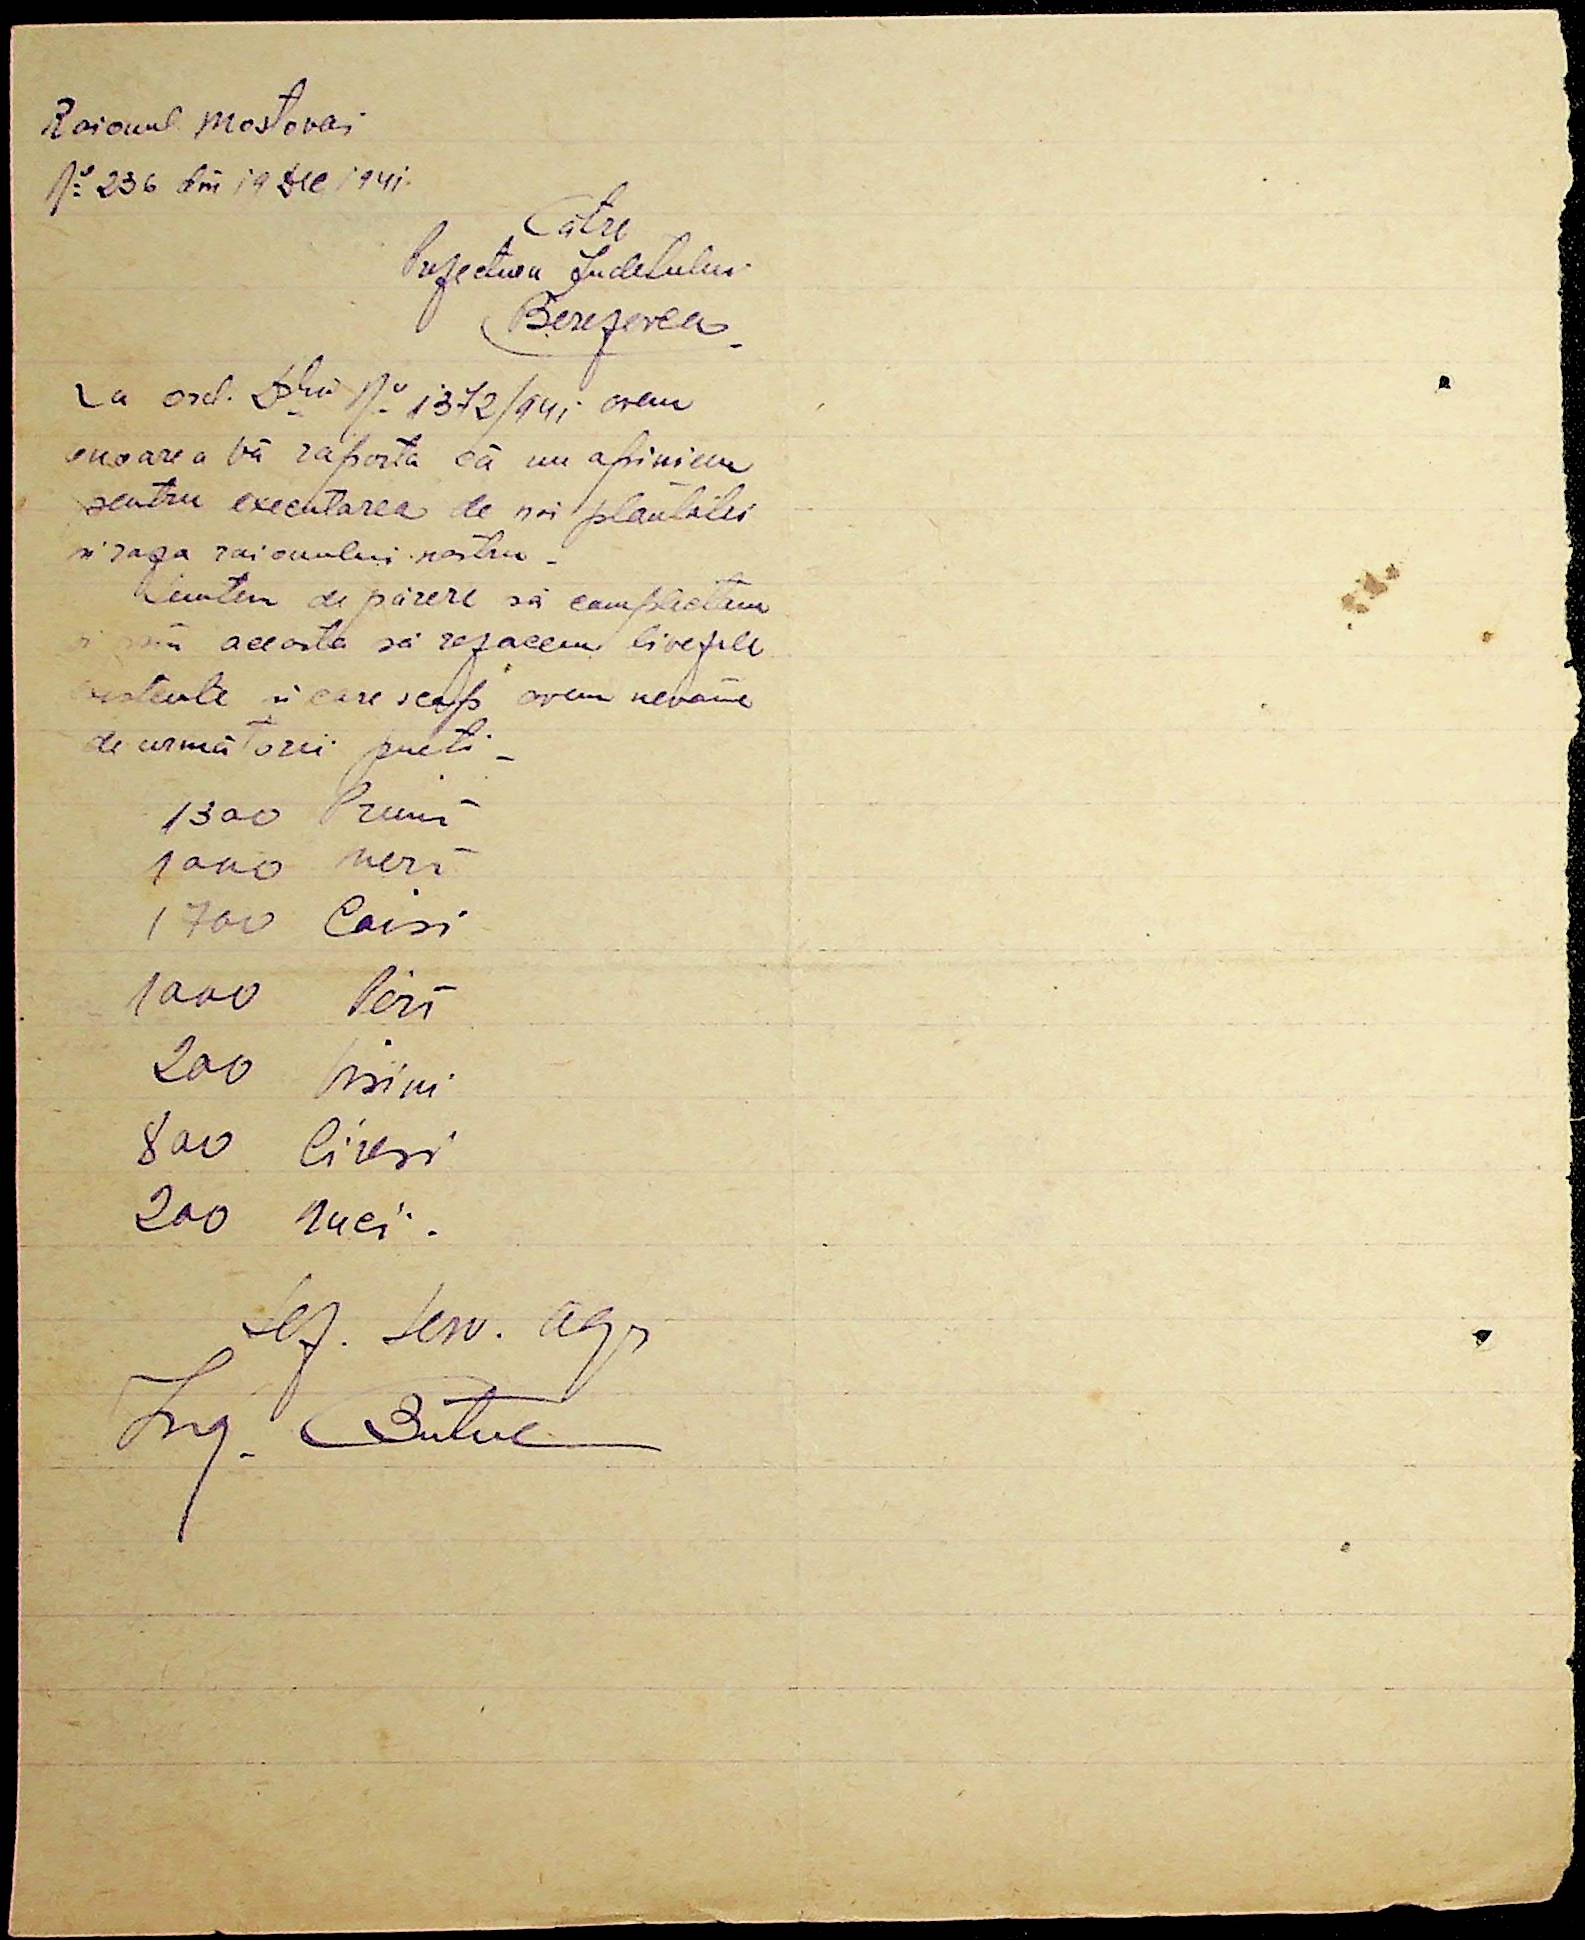 Raionul Mostovoi
No 236 din 19 Dec 1941.
Către
Prefectura Judetului
Berezovca
La ord. Dvs No 1372/941 avem
onoarea vă raporta că nu opiniem
pentru executarea de noi plantatii
in raza raionului nostru.
Suntem de părere să complectăm
si prin aceasta să refacem livezile
existente in care scop avem nevoie
de următorii pueti
1300 Pruni
1000 meri
1700 Caisi
1000 Peri
200 Visini
800 Ciresi
200 Nuci.
Sef. Serv. Agr
Ing.